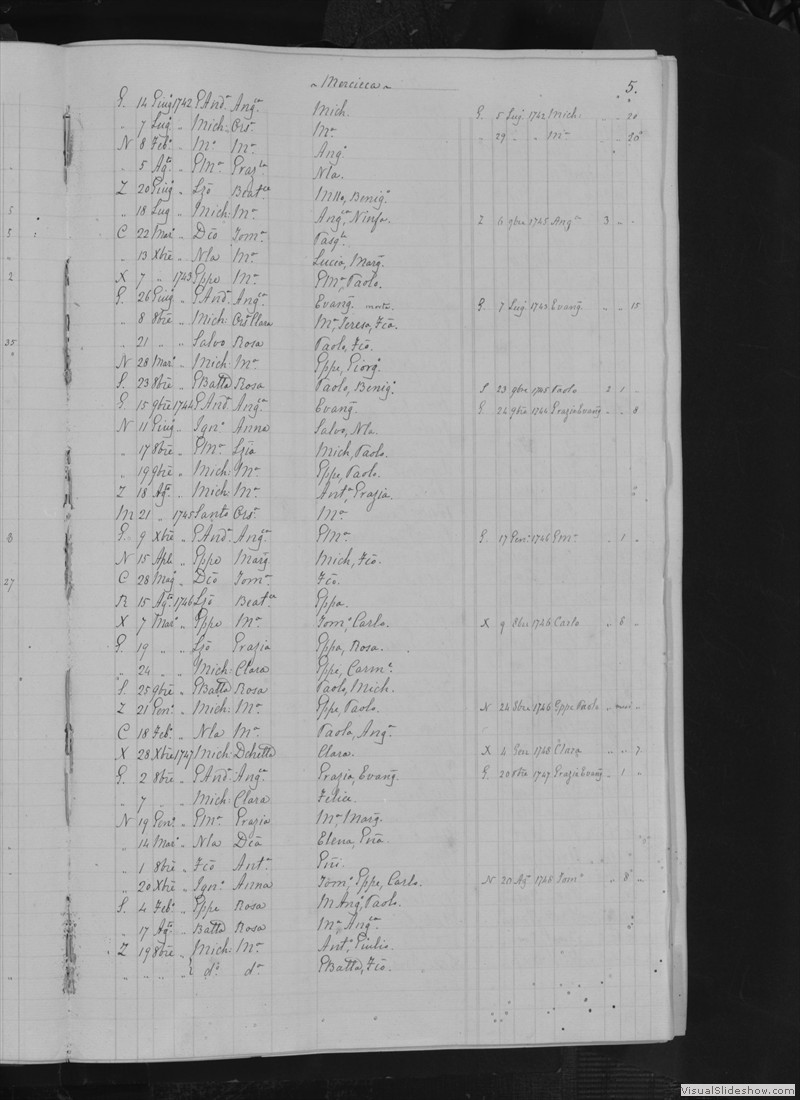 Mercieca 5.
G. 14 Giug 1742 G And. Ang.ca Mich. G. 5 Lug. 1742 Mich. " " 20
" 7 Lug. " Mich: Ors. M.a " 29 " " M.a " " 20
N 8 Feb. " M.o M.a Ang.
" 5 Ag. " G M.a Graz.la Nla.
Z 20 Giug. " Lzō Beat.ce Benig.
" 18 Lug " Mich: M.a Ang.a, Ninfa. Z 6 9bre 1745 Ang.ca 3 " "
C 22 Mar. " Dcō Tom.a
" 13 Xbre " Nla M.a Lucia, Marg.
X 7 " 1743 Gppe M.a G M.a Paolo.
G. 26 Giug. " G And. Ang.ca Evang. morto. G. 7 Lug. 1743 Evang. " " 15
" 8 8bre " Mich: Ors Clara M.a Teresa, Fcō.
" 21 " " Salvo Rosa Paolo, Fcō.
N 28 Mar. " Mich: M.a Gppe, Giorg.
S. 23 8bre " GBatta Rosa Paolo, Benig. S 23 9bre 1745 Paolo 2 1 "
G. 15 9bre 1744 G And. Ang.ca Evang. G. 24 9bre 1744 Grazia Evang. " " 8
N 11 Giug. " Ign. Anna Salvo, Nla.
" 17 8bre " G M.a Lzia Mich, Paolo.
" 19 9bre " Mich: M.a Gppe, Paolo.
Z 18 Ag. " Mich: M.a Ant. Grazia.
M 21 " 1745 Santo Ors. M.a
G. 9 Xbre " G And. Ang.ca G M.a G. 17 Gen. 1746 G M.a " 1 "
N 15 Apl. " Gppe Marg. Mich, Fcō.
C 28 Mag. " Dcō Tom.a Fcō.
R 15 Ag. 1746 Lzō Beat.ce Gppa.
X 7 Mar. " Gppe M.a Tom. Carlo. X 9 8bre 1746 Carlo " 6 "
G. 19 " " Lzō Grazia Gppa, Rosa.
" 24 " " Mich: Clara Gppe, Carm.
S. 25 9bre " GBatta Rosa Paolo, Mich.
Z 21 Gen. " Mich: M.a Gppe, Paolo. N 24 8bre 1746 Gppe Paolo
C 18 Feb. " Nla M.a Paola, Ang.a
X 28 Xbre 1747 Mich: Debetta Clara. X 4 Gen 1748 Clara " " 7
G. 2 8bre " G And. Ang.ca Grazia, Evang. G. 20 8bre 1747 Grazia Evang. " 1 "
" 7 " " Mich: Clara Felice.
N 19 Gen. " G M.a Grazia M.a Marg.
" 14 Mar. " Nla Dcā Elena, Gña.
" 1 8bre " Fcō Ant.a Gñi.
" 20 Xbre " Ign. Anna Tom. Gppe, Carlo. N 20 Ag. 1748 Tom. " 8 "
S. 4 Feb. " Gppe Rosa M Ang. Paolo.
" 17 Ag. " Batta Rosa M.a Ang.ca
Z 19 8bre " Mich: M.a Ant. Giulio.
" " " " d.o d.a GBatta, Fcō.
5
5
2
35
8
27
VisualSlideshow.com